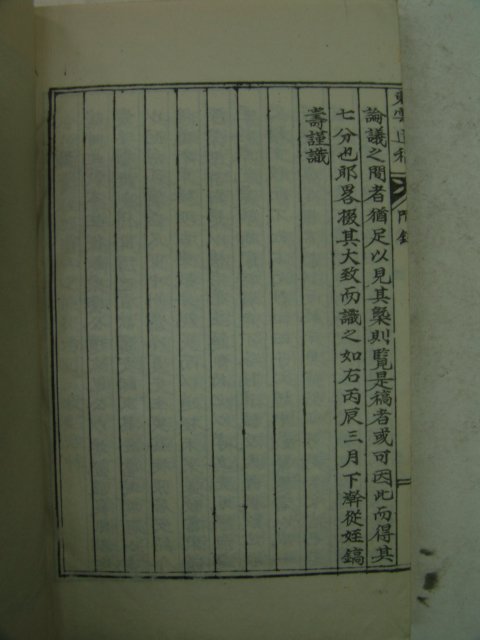 東雲遺稿 附錄
論議之間者猶足以見其槩則覽是稿者或可因此而得其
七分也耶畧掇其大致而識之如右丙辰三月下澣從姪鎬
壽謹識